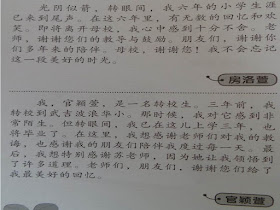 光阴似箭，转眼间，我六年的小学生涯
已来到尾声。在这六年里，有无数的回忆和欢
笑。即将离开母校，我心中感到十分不舍。老
师，谢谢您们的教导与鼓励。朋友们，谢谢你
们多年来的陪伴。母校，谢谢您！我不会忘记
这一段美好的时光。
房洛萱
我，官颖萱，是一名转校生。三年前，我
转校到武吉波浪华小。那时候，我对它感到非
常陌生。但转眼间，我已在这儿上学三年，也
将毕业了。在这里，我想感谢老师们对我的教
诲，也感谢我的朋友们陪伴我度过每一天。最
后，我想特别感谢苏老师，因为她让我领悟到
了许多道理。老师们，朋友们，谢谢您们给了
我最美好的回忆。
官颖萱